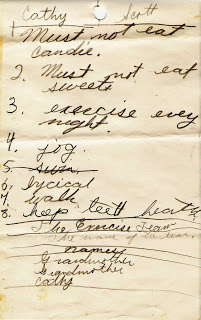 Cathy Scott
1. Must not eat
candie.
2. Must not eat
sweets
3. exercise evey
night.
4. jog.
5. swim
6. bycical
7. walk
8. kep teeth
The Exercise Team
The name of the
names
Grandmother
Grandmother
Cathy